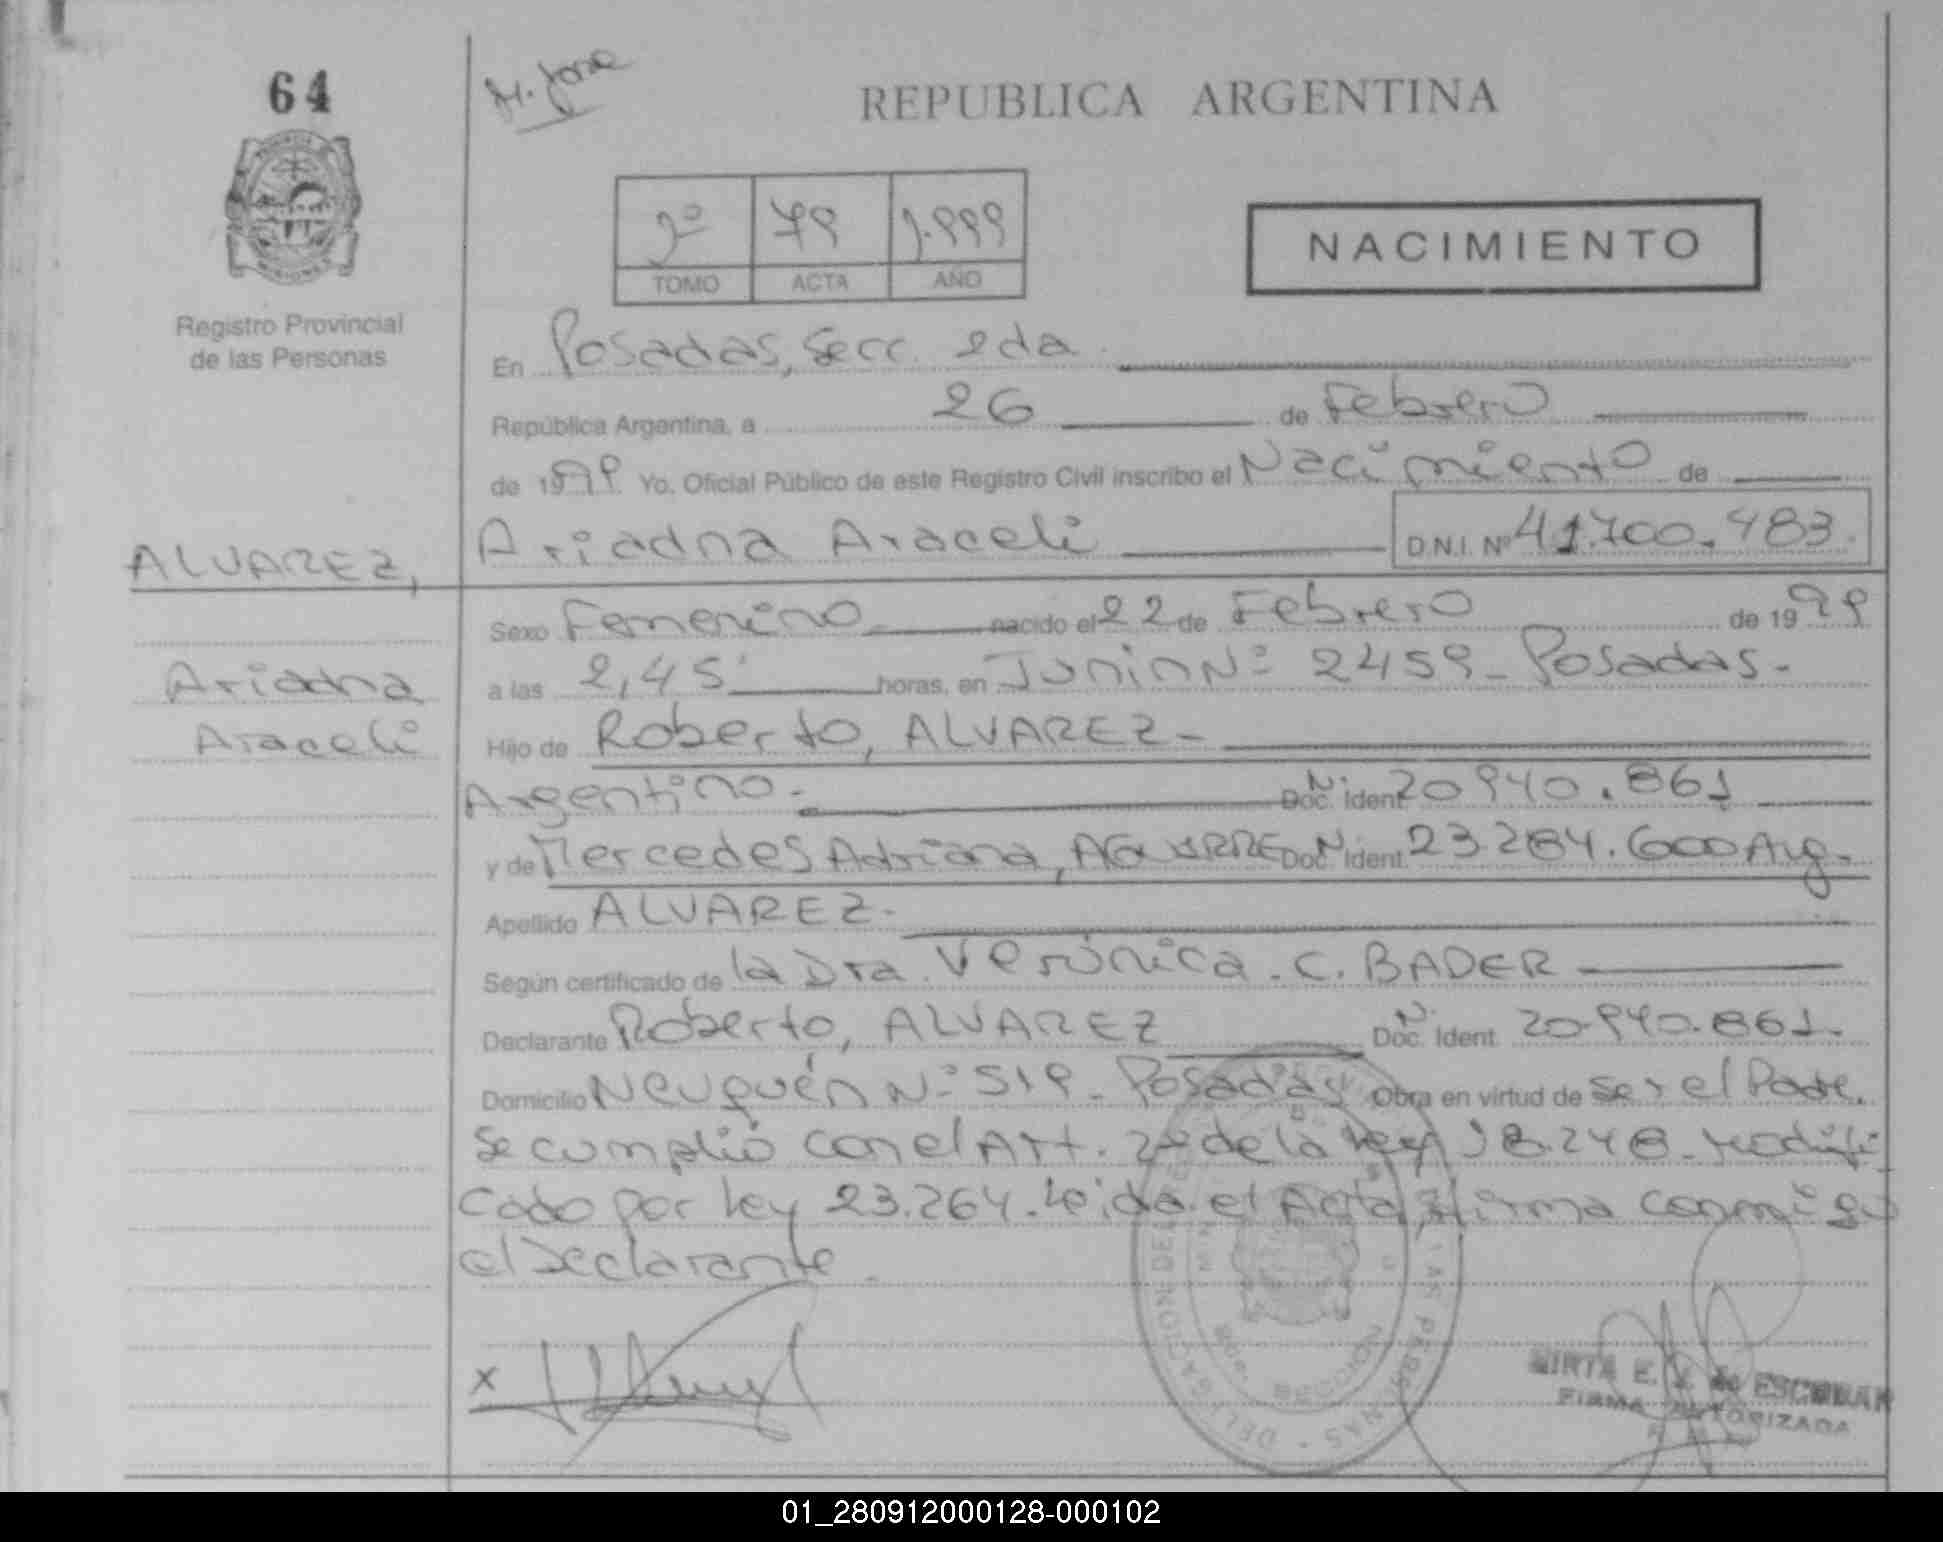 64
REPUBLICA ARGENTINA
2º 79 1.999
TOMO ACTA AÑO
NACIMIENTO
Registro Provincial
de las Personas
En Posadas, Secc. 2da
República Argentina, a 26 de Febrero
de 1999 Yo. Oficial Público de este Registro Civil inscribo el Nacimiento de
ALVAREZ, Ariadna Araceli D.N.I. Nº 41.700.483.
Sexo Femenino nacido el 22 de Febrero de 1999
Ariadna
a las 2,45' horas, en Junin Nº 2459 - Posadas.
Araceli
Hijo de Roberto, ALVAREZ -
Argentino. Doc. Ident. Nº 20.940.861
y de Mercedes Adriana, AGUIRRE Doc. Ident. Nº 23.284.600 Arg.
Apellido ALVAREZ.
Según certificado de la Dra. Verónica. C. BADER
Declarante Roberto, ALVAREZ Doc. Ident. Nº 20.940.861.
Domicilio Neuquén Nº 519 - Posadas Obra en virtud de Ser el Padre.
Se cumplió con el Art. 2º de la Ley 18.248 - Modifi
cado por Ley 23.264. Leida el Acta, firma conmigo
el Declarante.
x
MIRTA E. V. de ESCOBAR
FIRMA AUTORIZADA
01_280912000128-000102